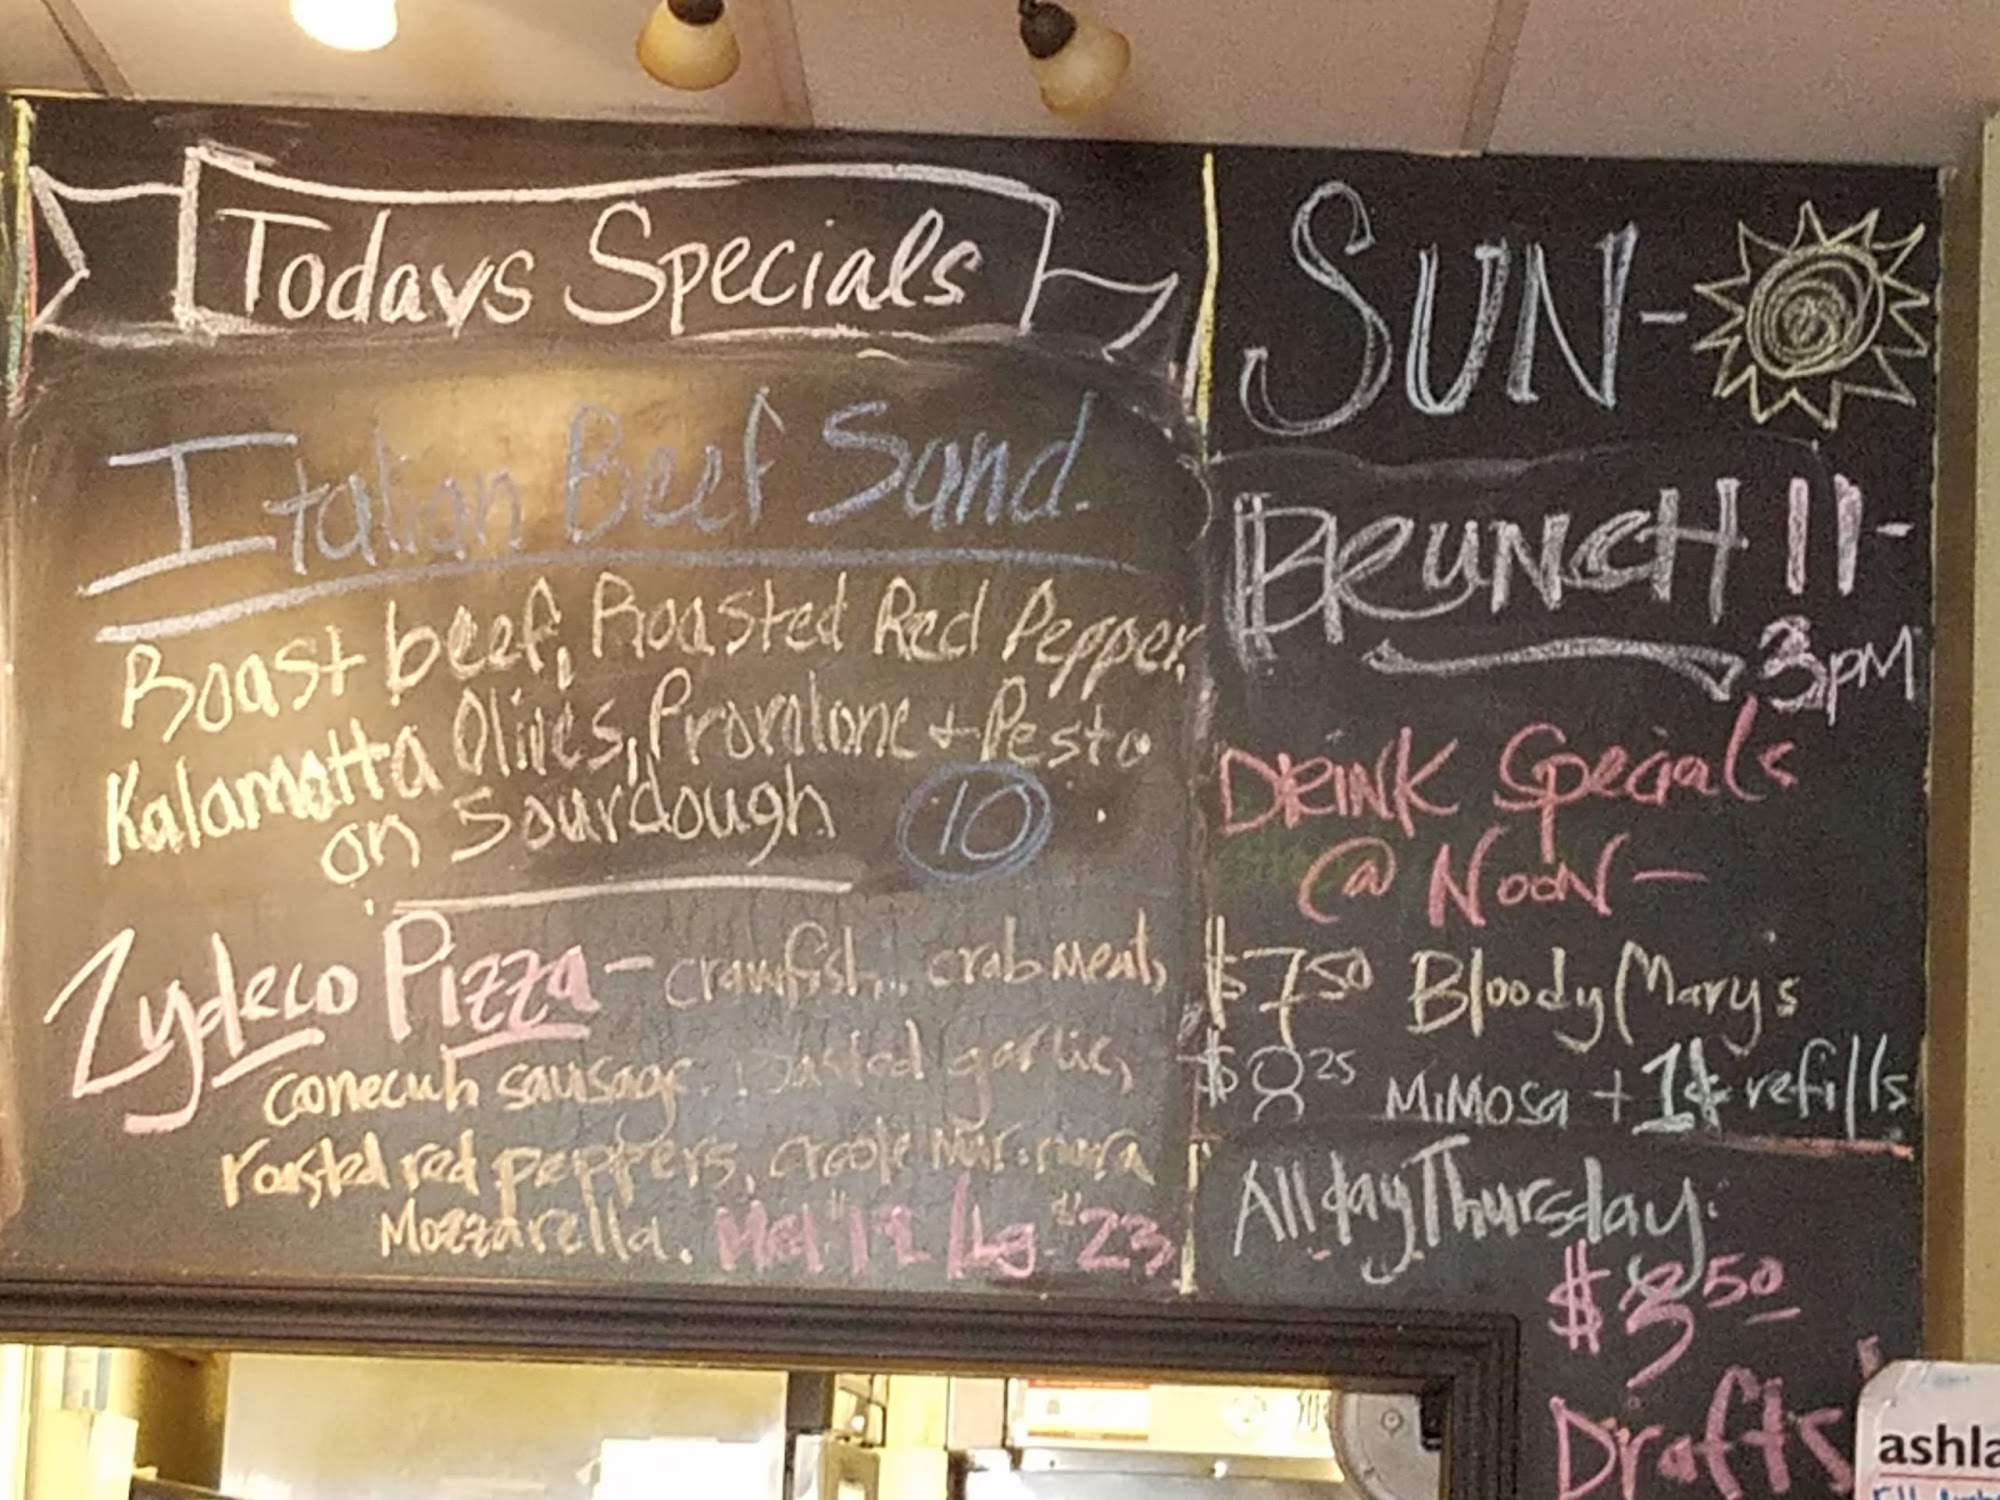 Todays Specials
Italian Beef Sand.
Roast beef, Roasted Red Pepper,
Kalamatta Olives, Provolone + Pesto
on Sourdough 10
Zydeco Pizza - crawfish, crab meat,
conecuh sausage, roasted garlic,
roasted red peppers, creole marinara
Mozzarella. Med. $12 / Lg. $23
SUN-
BRUNCH 11-
3PM
DRINK Specials
@ NOON -
$7.50 Bloody Mary's
$8.25 MIMOSA + 1¢ refills
All day Thursday:
$3.50
Drafts
ashla